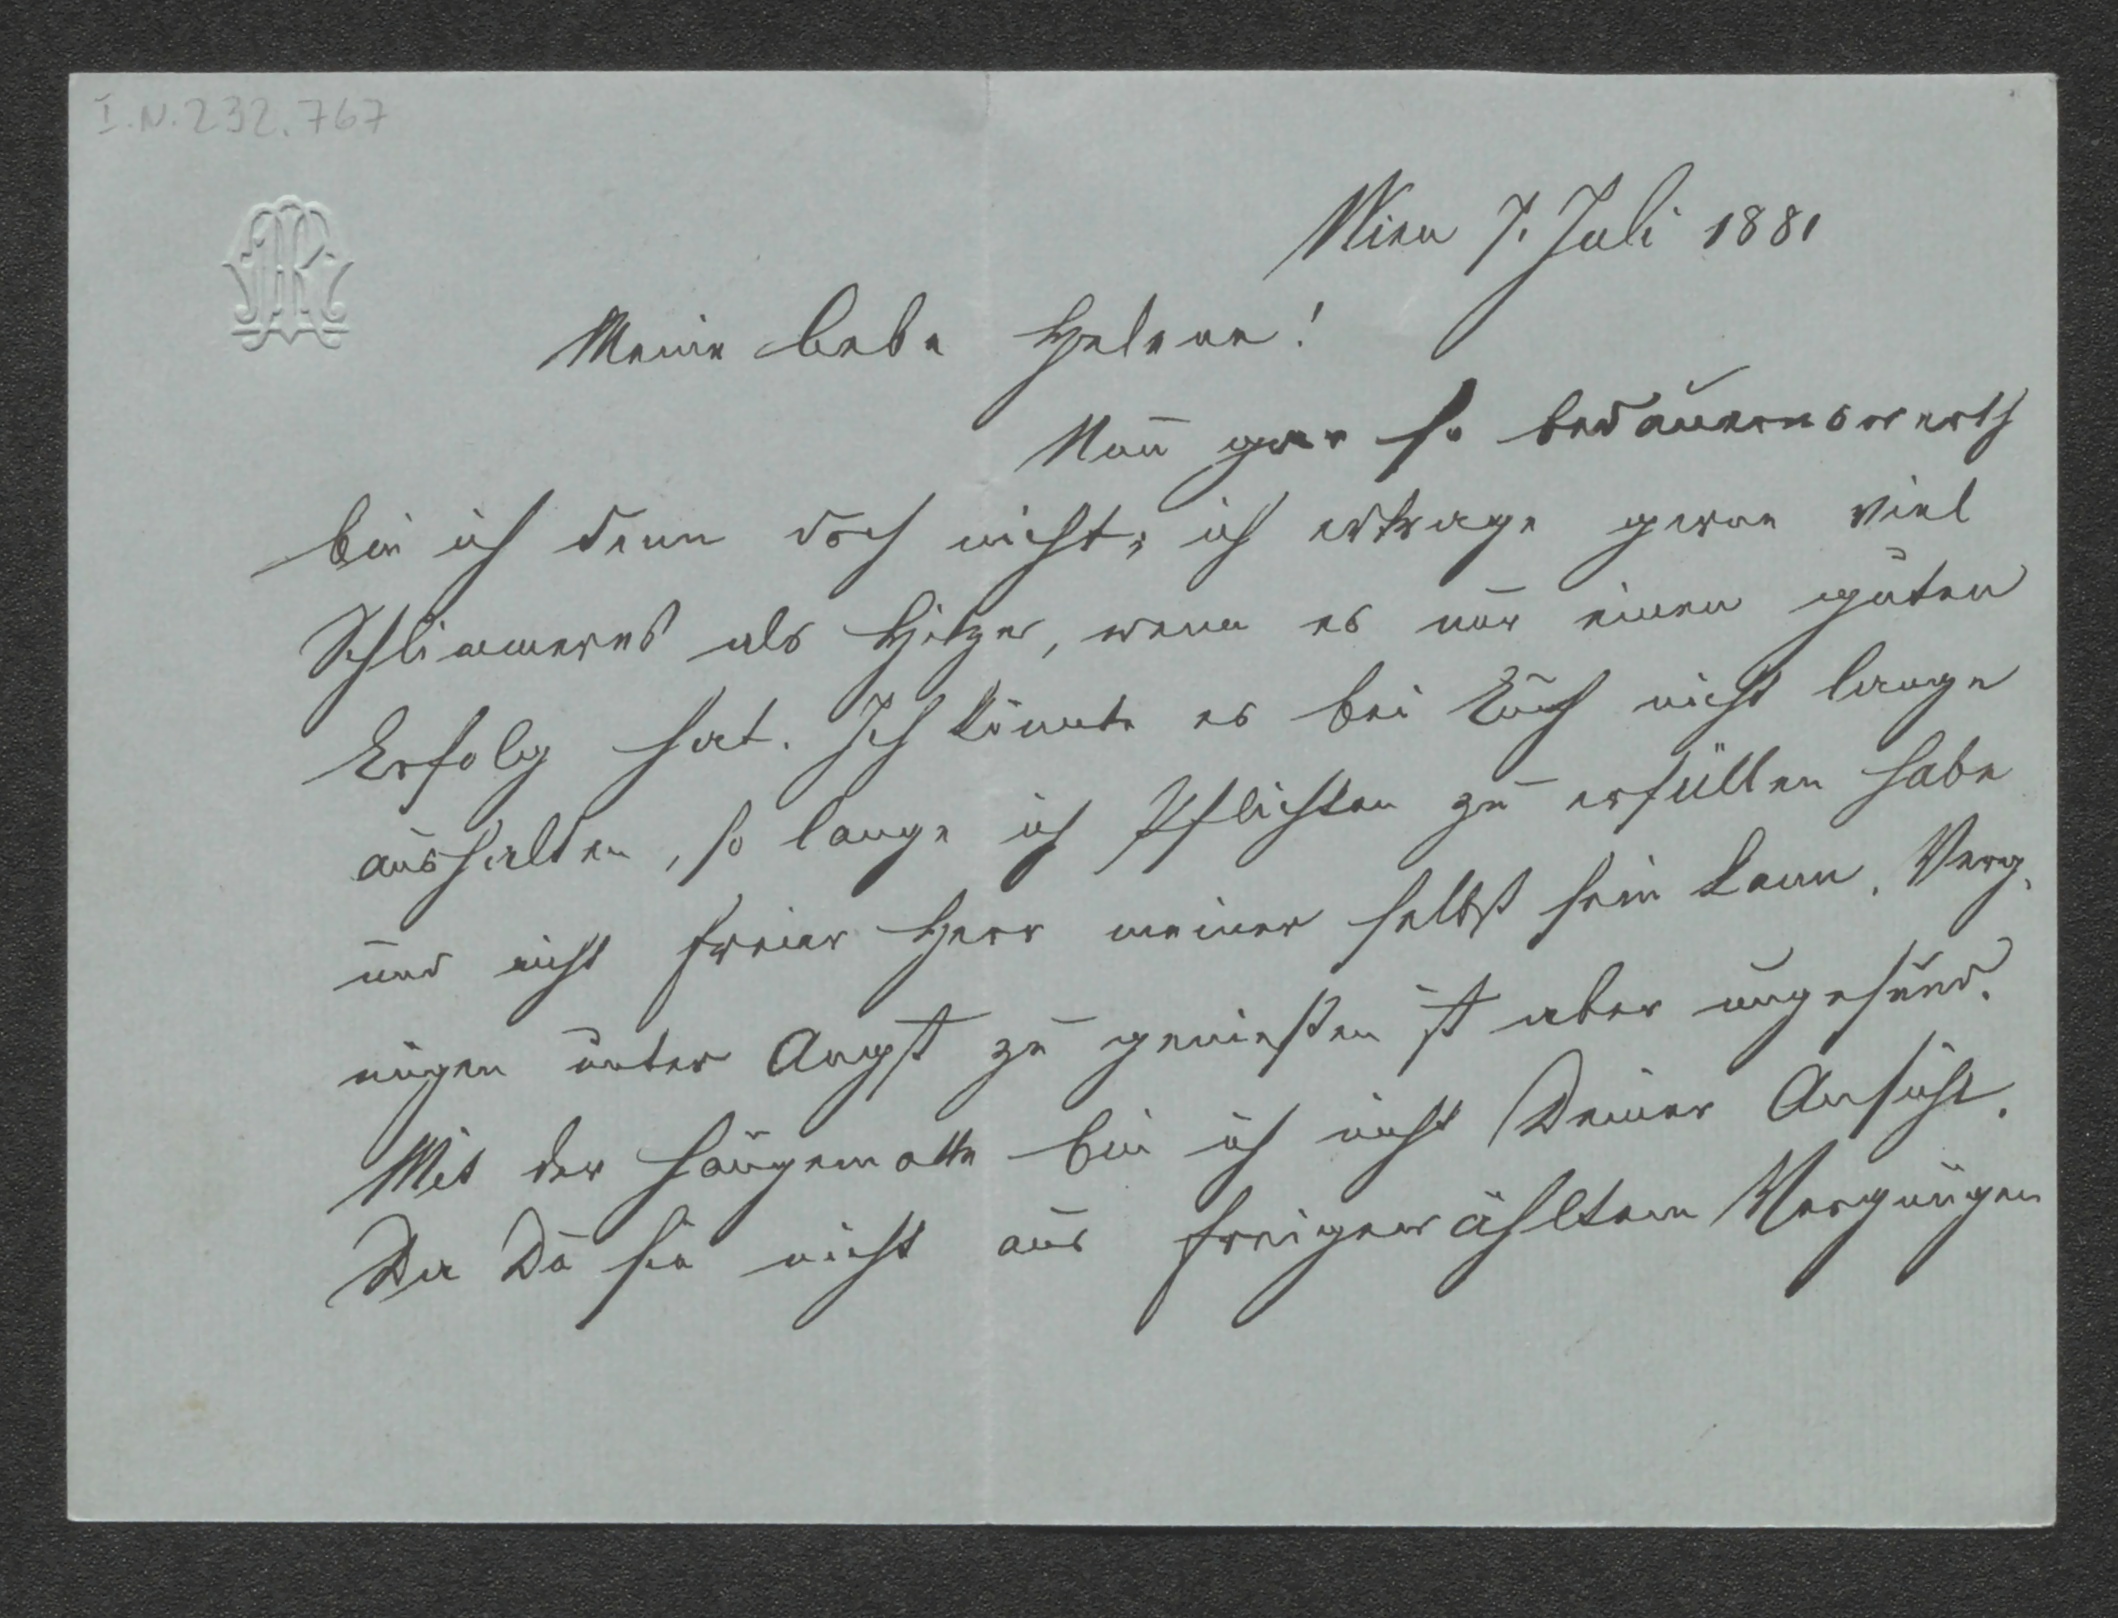 I.N. 232.767
Wien 7. Juli 1881
Meine liebe Helene!
Nun gar so bedauernswerth
bin ich denn doch nicht; ich ertrage gerne viel
Schlimmeres als Hitze, wenn es nur einen guten
Erfolg hat. Ich könnte es bei Euch nicht lange
aushalten, so lange ich Pflichten zu erfüllen habe
und nicht freier Herr meiner selbst sein kann. Verg-
nügen unter Angst zu genießen ist aber ungesund.
Mit der Hängematte bin ich nicht Deiner Ansicht.
Da Du sie nicht aus freigewähltem Vergnügen